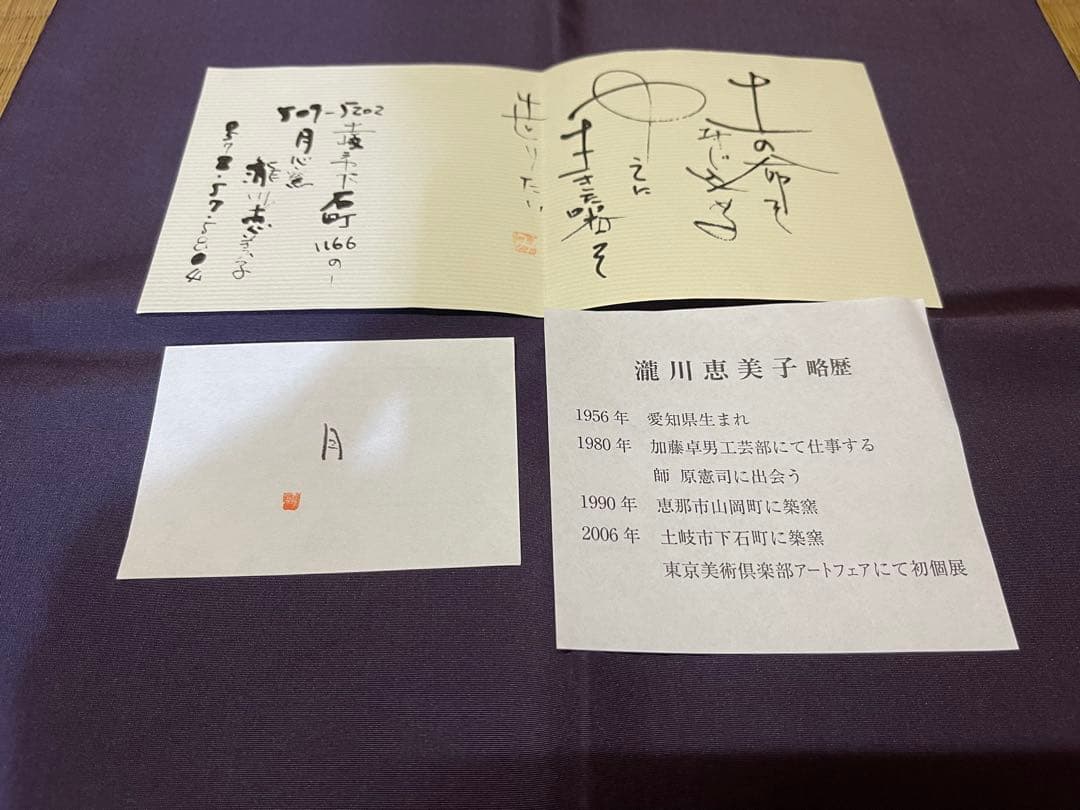 土の命を
みじ
中
えに
生きた
を
せりたい
509-5202
土岐市下石町1166の1
月心窯
瀧川恵美子
月
瀧川恵美子略歴
1956年 愛知県生まれ
1980年 加藤卓男工芸部にて仕事する
師 原憲司に出会う
1990年 恵那市山岡町に築窯
2006年 土岐市下石町に築窯
東京美術倶楽部アートフェアにて初個展